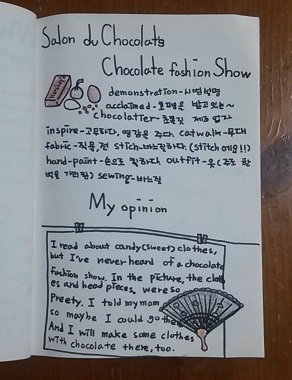 Salon du Chocolats
Chocolate fashion Show
demonstration-시범설명
acclaimed-호평을 받고있는~
chocolatier-초콜릿 제조 업자
inspire-고무하다, 영감을 주다. catwalk-무대
fabric-직물, 천 stich-바느질하다. (stitch 예요!!)
hand-paint-손으로 칠하다. outfit-옷(주로 한
벌을 가리킴) sewing-바느질
My opinion
I read about candy(sweet) clothes,
but I've never heard of a chocolate
fashion show. In the picture, the cloth
es and head pieces, were so
Preety. I told my mom
so maybe I could go there
And I will make some clothes
with chocolate there, too.